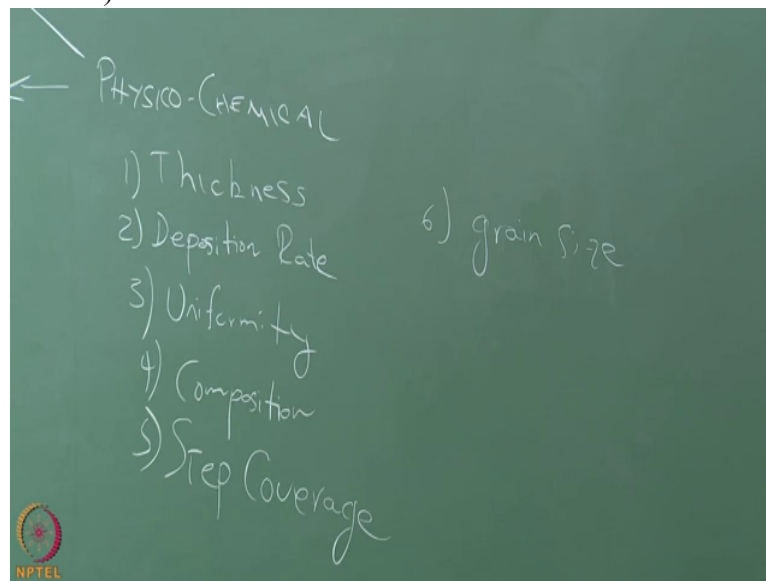 PHYSICO-CHEMICAL
1) Thickness
2) Deposition Rate
3) Uniformity
4) Composition
5) Step Coverage
6) grain Size
NPTEL